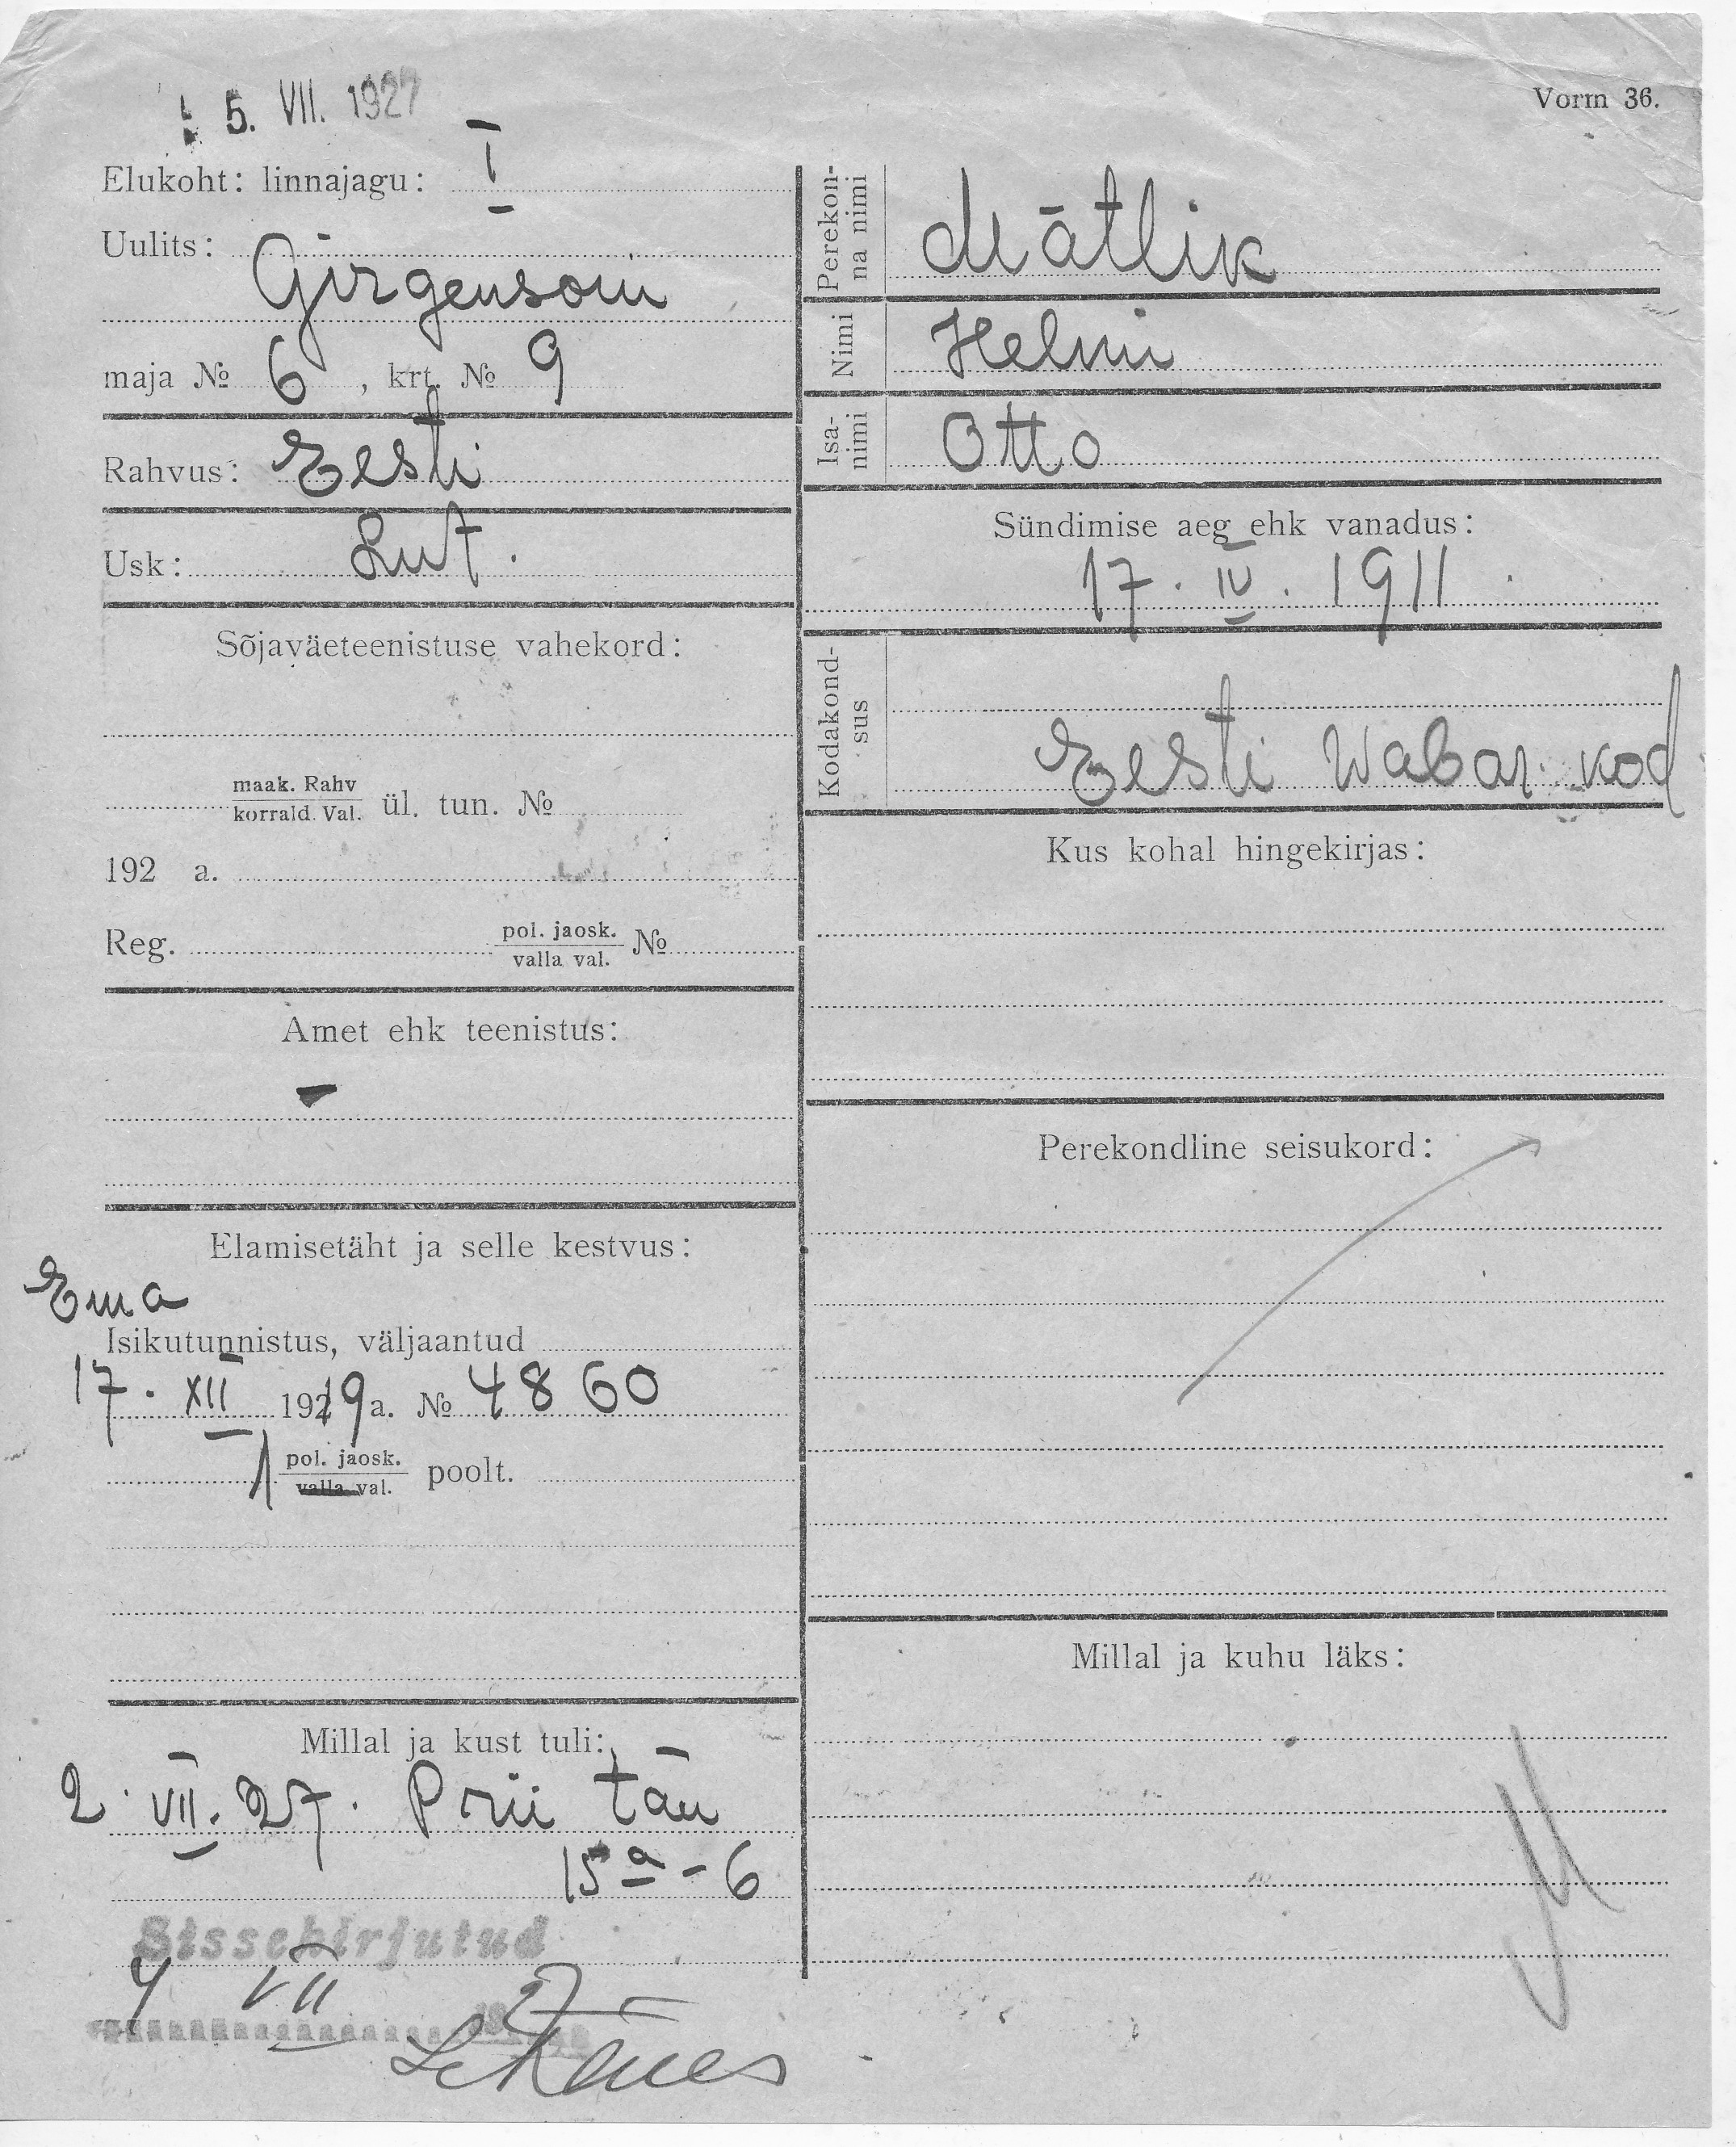 5. VII. 1927
Vorm 36.
Elukoht: linnajagu: I
Uulits:
Girgensoni
maja № 6, krt. № 9
Rahvus: Eesti
Usk: Lut.
Sõjaväeteenistuse vahekord:
maak. Rahv
korrald. Val. ül. tun. №
192 a.
Reg. pol. jaosk. №
valla val.
Amet ehk teenistus:
-
Elamisetäht ja selle kestvus:
Ema
Isikutunnistus, väljaantud
17. XII 1919 a. № 4860
1 pol. jaosk. poolt.
valla val.
Millal ja kust tuli:
2. VII. 27. Prii tän
15a - 6
Sissekirjutud
4 VII 27
Perekon-
na nimi
Mätlik
Nimi
Helmi
Isa-
nimi
Otto
Sündimise aeg ehk vanadus:
17. IV. 1911
Kodakond-
sus
Eesti Wabar. kod
Kus kohal hingekirjas:
Perekondline seisukord:
Millal ja kuhu läks: